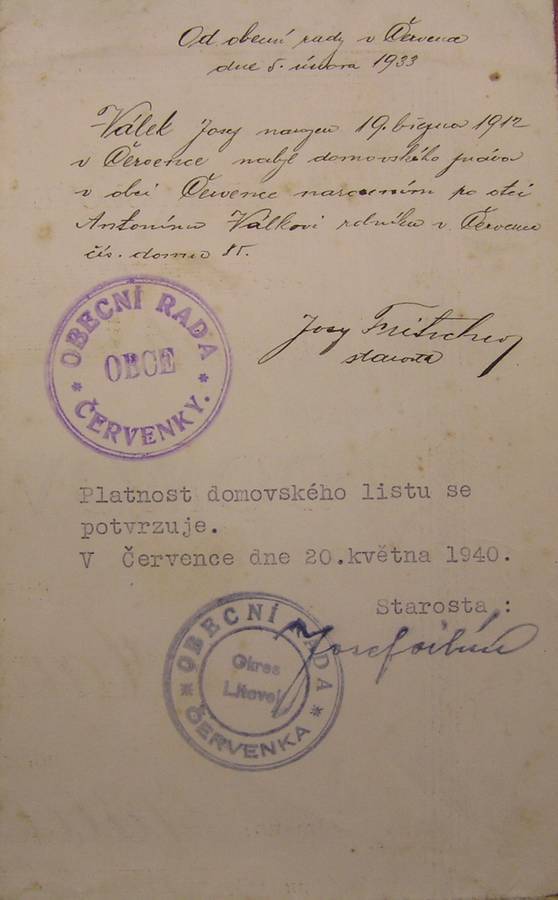 Od obecní rady v Července
dne 5. února 1933
Válek Josef narozen 19. března 1912
v Července nabyl domovského práva
v obci Července narozením po otci
Antonínu Válkovi rolníku v Července
čís. domu 85.
OBECNÍ RADA
OBCE
ČERVENKY.
Josef
starosta
Platnost domovského listu se
potvrzuje.
V Července dne 20.května 1940.
Starosta:
OBECNÍ RADA
Okres
Litovel
ČERVENKA
Josef